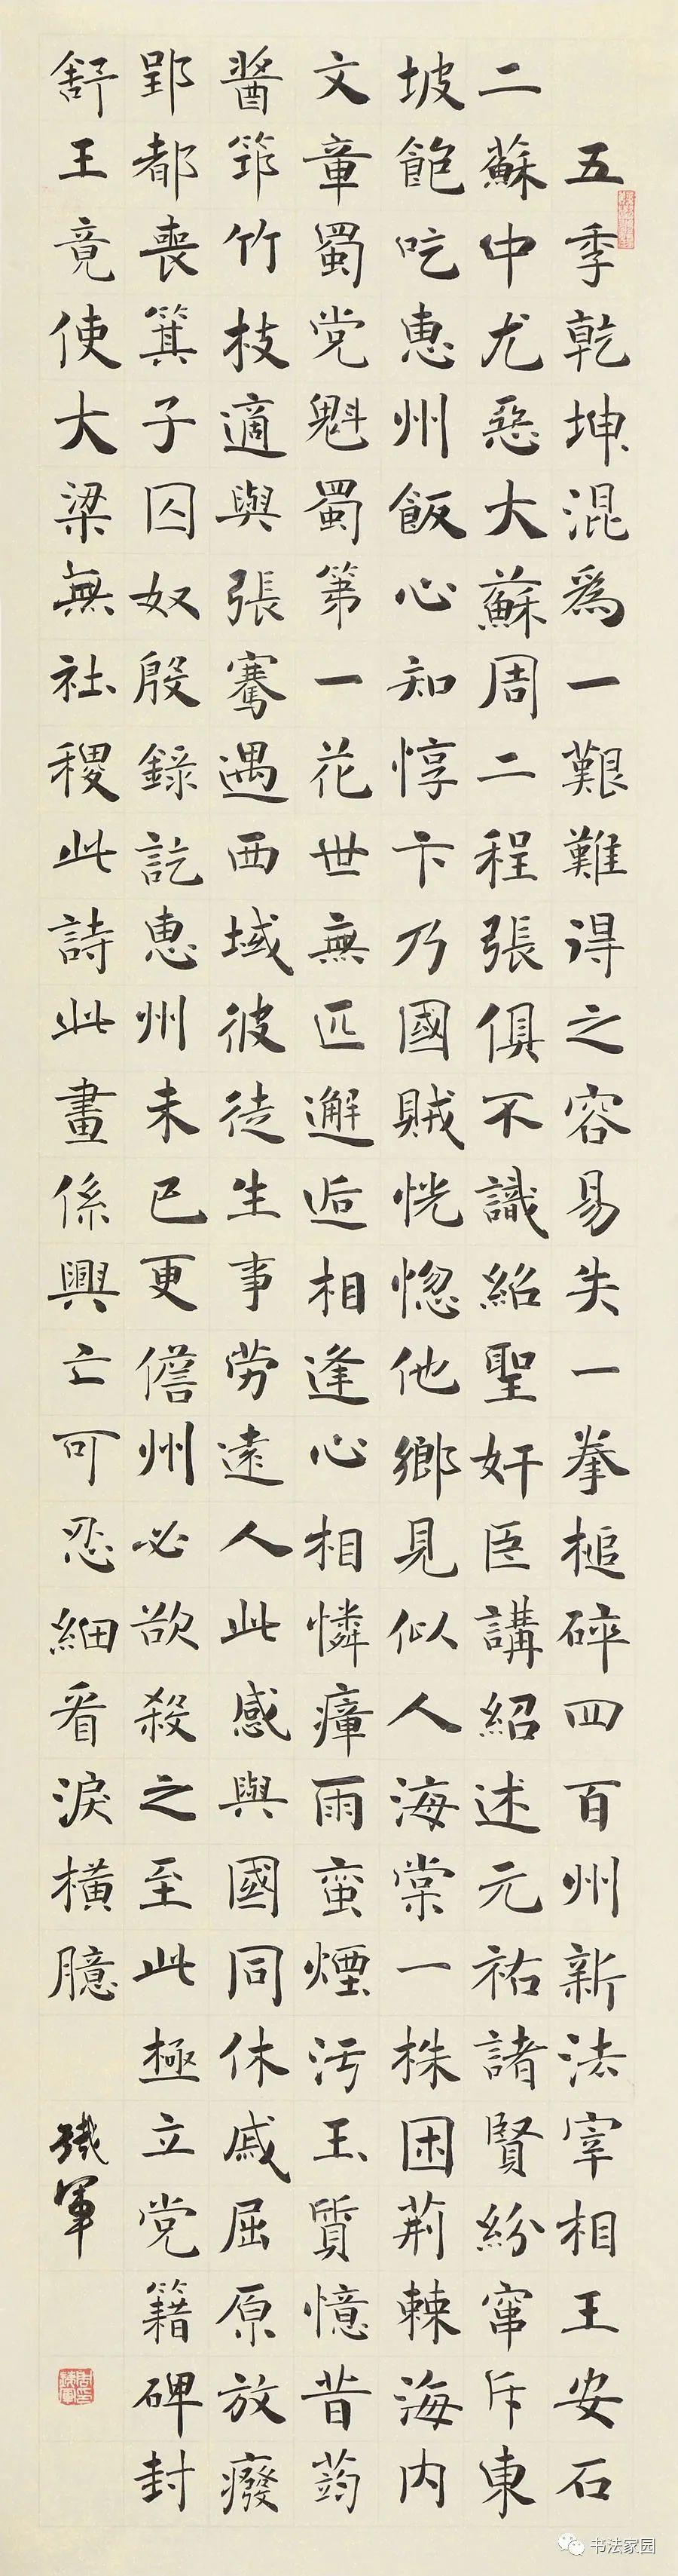 五季乾坤混爲一艱難得之容易失一拳槌碎四百州新法宰相王安石
二蘇中尤惡大蘇周二程張俱不識紹聖奸臣講紹述元祐諸賢紛窜斥東
坡飽吃惠州飯心知惇卞乃國賊恍惚他鄉見似人海棠一株困荊棘海内
文章蜀党魁蜀第一花世無匹邂逅相逢心相憐瘴雨蛮煙汚玉質憶昔蒟
醬筇竹枝適與張騫遇西域彼徒生事勞遠人此感與國同休戚屈原放癈
郢都喪箕子囚奴殷錄訖惠州未已更儋州必欲殺之至此極立党籍碑封
舒王竟使大梁無社稷此詩此畫係興亡可忍細看淚橫臆
書法家园